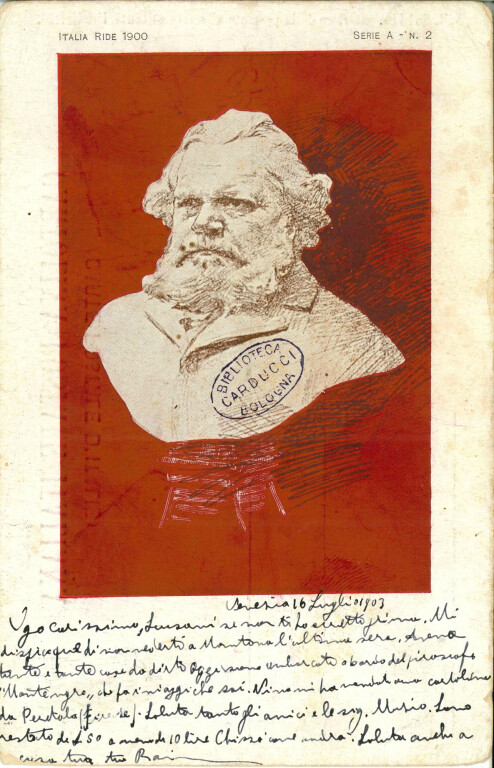 ITALIA RIDE 1900
SERIE A - N. 2
BIBLIOTECA
CARDUCCI
BOLOGNA
Venezia 16 Luglio 1903
Ugo carissimo, scusami se non ti ho scritto prima. Mi
dispiacque di non vederti a Mantova l'ultima sera. Avevo
tante e tante cose da dirti. Oggi sono imbarcato a bordo del piroscafo
"Montenegro" che fa i viaggi che sai. Nino mi ha mandato una cartolina
da Peretola (Firenze). Saluta tanto gli amici e la sig. Maria. Sono
restato da £ 50 a meno di 10 lire Chissà come andrà. Saluta anche a
casa tua tuo